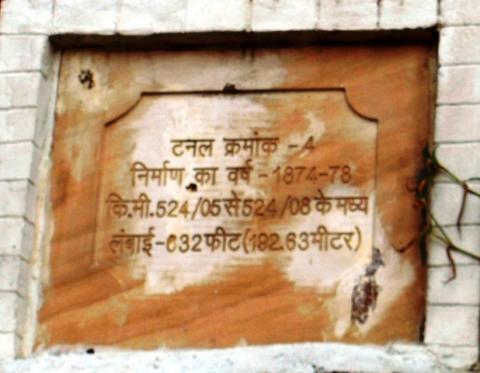 टनल क्रमांक -4
निर्माण का वर्ष -1874-78
कि.मी.524/05 से 524/08 के मध्य
लंबाई-632 फीट(192.63मीटर)